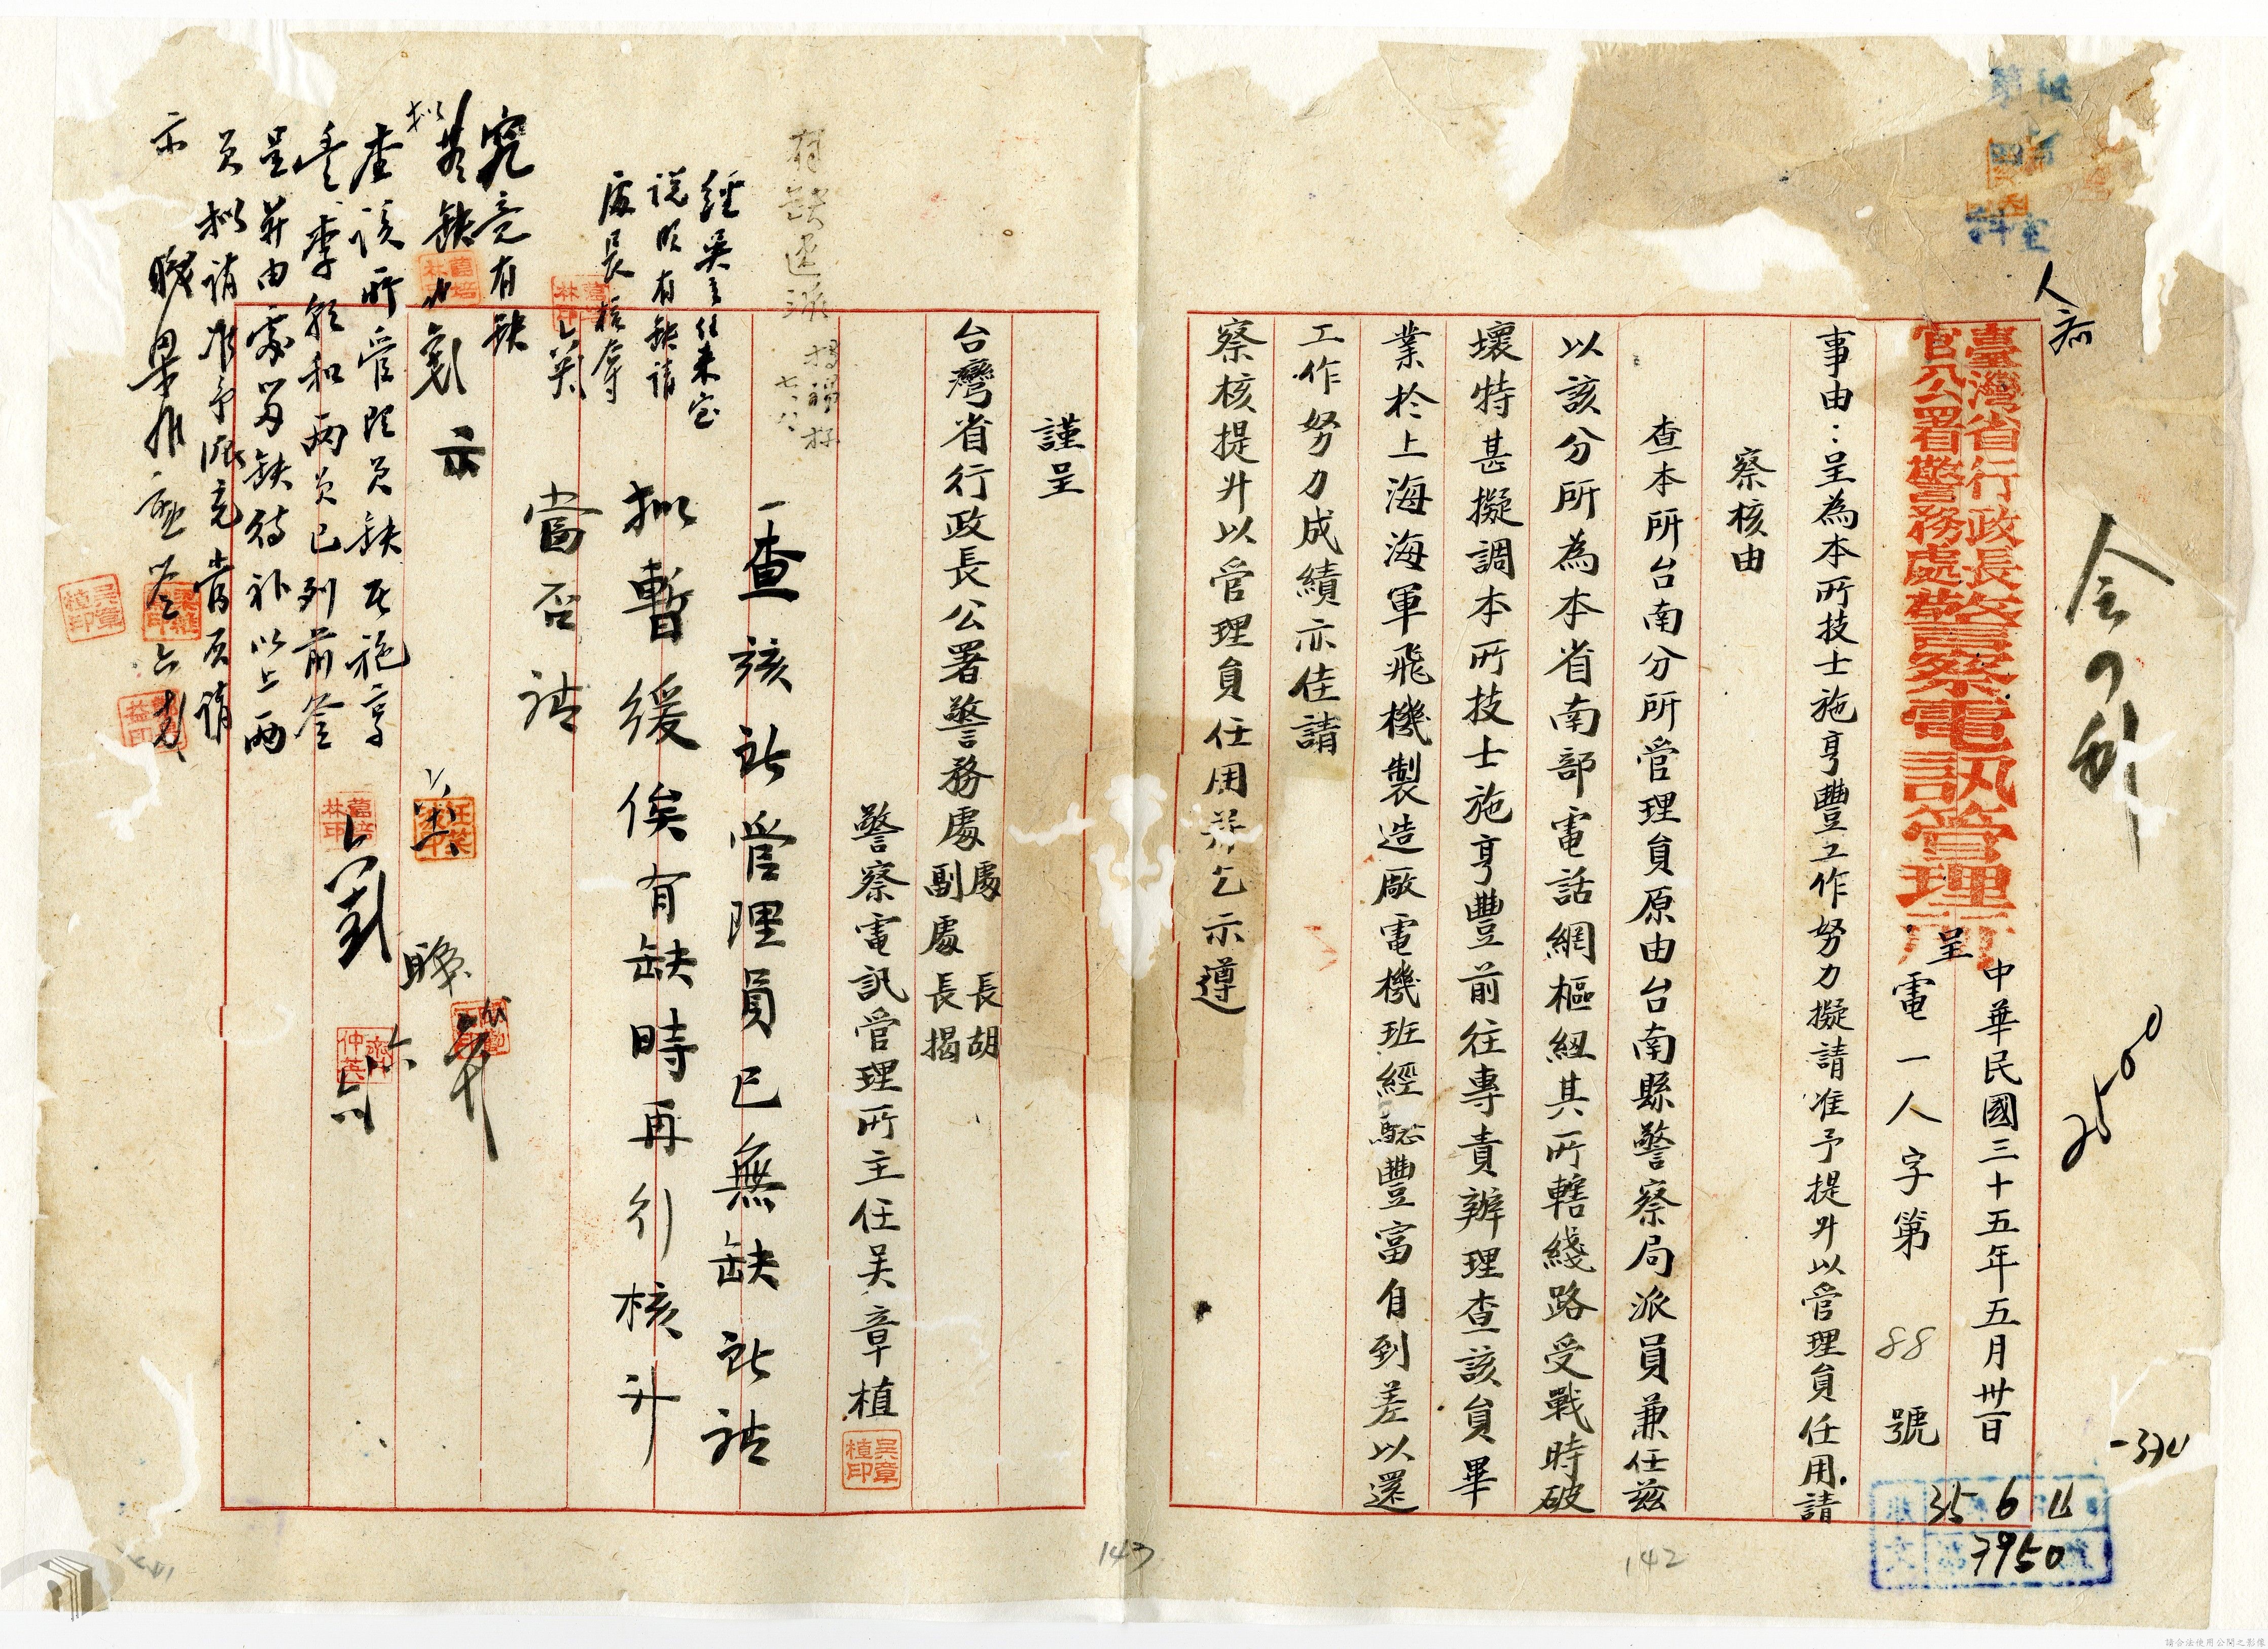 人
35 6 11
7950
2500
臺灣省行政長
官公署警務處
警察電訊管理所
呈
中華民國三十五年五月卅一日
電一人字第 88 號
事由：呈為本所技士施亨豐工作努力擬請准予提升以管理員任用請
察核由
查本所台南分所管理員原由台南縣警察局派員兼任茲
以該分所為本省南部電話網樞紐其所轄綫路受戰時破
壞特甚擬調本所技士施亨豐前往專責辦理查該員畢
業於上海海軍飛機製造廠電機班經驗豐富自到差以還
工作努力成績亦佳請
察核提升以管理員任用并乞示遵
142
謹呈
台灣省行政長公署警務處處長胡
副處長揭
警察電訊管理所主任吴章植
吳章植印
有缺還派
七、八
經吳主任来室
說明有缺請
處長核奪
一查該所管理員已無缺所請
拟暫緩俟有缺時再引核升
當否請
示
究竟有缺
查該所管理員缺至施亨
豐、李和兩員已列前簽
呈并由處留缺待补以上兩
員拟請准予派充當否請
示
143